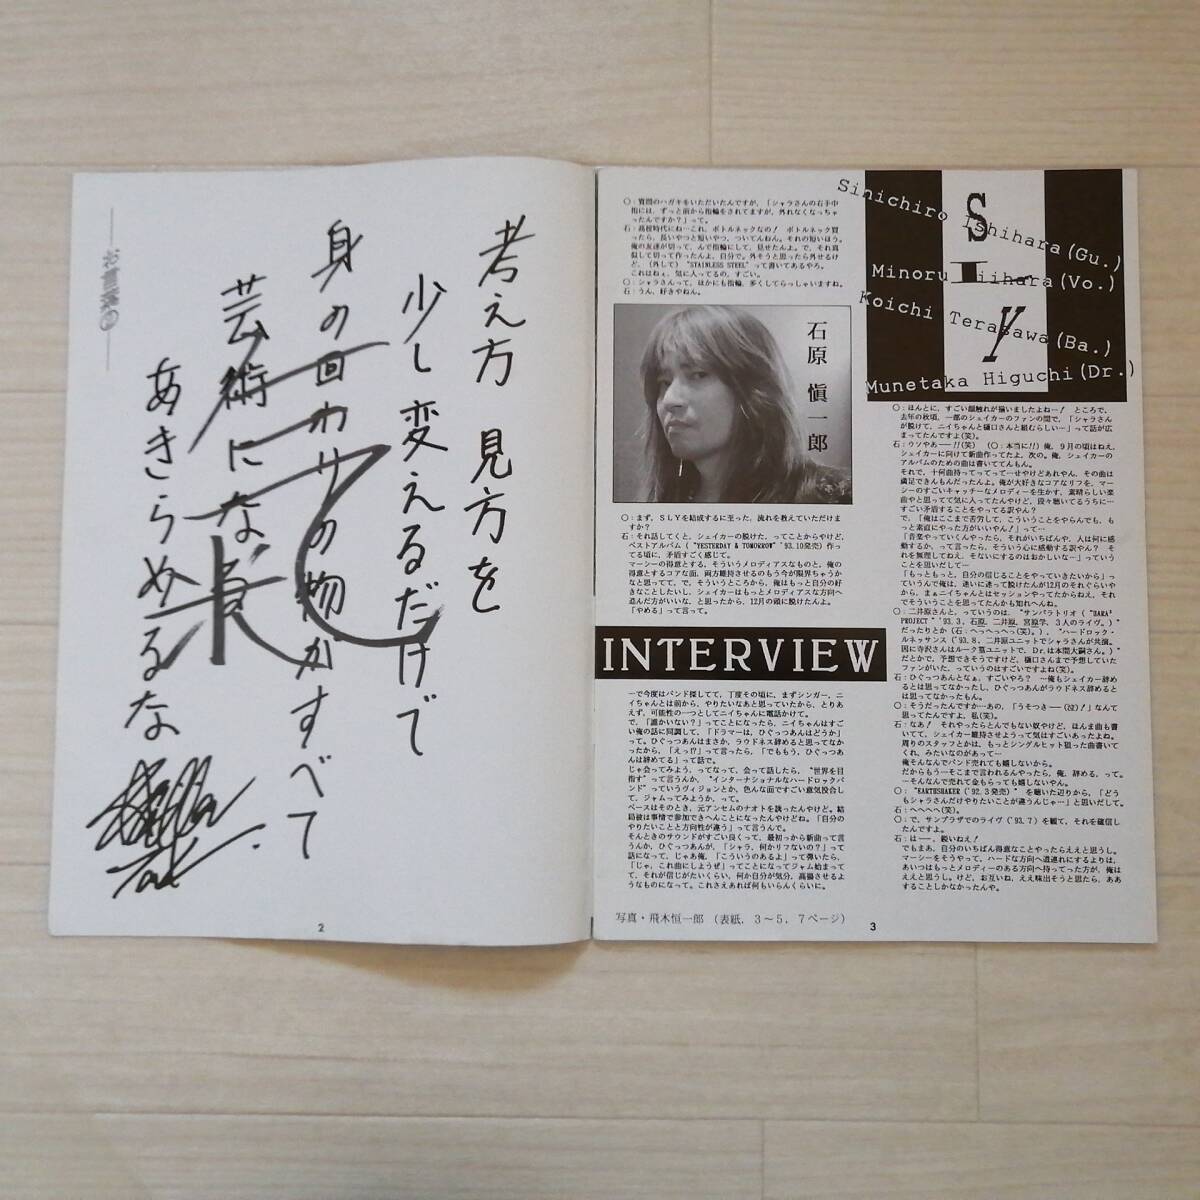 考え方 見方を
少し変えるだけで
身の回わりの物がすべて
芸術になる
あきらめるな
2
○：質問のハガキをいただいたんですが、「シャラさんの右手中
指には、ずっと前から指輪をされてますが、外れなくなっちゃ
ったんですか？」って。
石：高校時代にね…これ、ボトルネックなの！ ボトルネック買
ったら、長いやつと短いやつ、ついてんねん。それの短いほう。
俺の友達が切って、んで指輪にして、見せたんよ。で、それ真
似して切って作ったんよ、自分で。外そうと思ったら外せるけ
ど、（外して）“STAINLESS STEEL”って書いてあるやろ。
これはねぇ、気に入ってるの、すごい。
○：シャラさんって、ほかにも指輪、多くしてらっしゃいますね。
石：うん、好きやねん。
石原 愼一郎
○：まず、ＳＬＹを結成するに至った、流れを教えていただけま
すか？
石：それ話してくと、シェイカーの脱けた、ってことからやけど、
ベストアルバム（“YESTERDAY & TOMORROW”'93.10発売）作っ
てる頃に、矛盾すごく感じて。
マーシーの得意とする、そういうメロディアスなものと、俺の
得意とするコアな面、両方維持させるのもう今が限界ちゃうか
なと思ってて。で、そういうところから、俺はもっと自分の好
きなことしたいし、シェイカーはもっとメロディアスな方向へ
進んだ方がいいな、と思ったから、12月の頭に脱けたんよ。
「やめる」って言って。
INTERVIEW
一で今度はバンド探してて、丁度その頃に、まずシンガー、ニ
イちゃんとは前から、やりたいなあと思っていたから、とりあ
えず、可能性の一つとしてニイちゃんに電話かけて。
で、「誰かいない？」ってことになったら、ニイちゃんはすご
い俺の話に同調して、「ドラマーは、ひぐっつあんはどうか」
って。ひぐっつあんはまさか、ラウドネス辞めると思ってなか
ったから、「えっ!?」って言ったら、「でももう、ひぐっつあ
んは辞めてる」って話で。
じゃ会ってみよう、ってなって、会って話したら、“世界を目
指す”って言うんか、“インターナショナルなハードロックバ
ンド”っていうヴィジョンとか、色んな面ですごい意気投合し
て、ジャムってみようか、って。
ベースはそのとき、元アンセムのナオトを誘ったんやけど。結
局彼は事情で参加できへんことになったんやけどね。「自分の
やりたいことと方向性が違う」って言うんで。
そんときのサウンドがすごい良くって、最初っから新曲って言
うんか、ひぐっつあんが、「シャラ、何かリフないの？」って
話になって、じゃあ俺、「こういうのあるよ」って弾いたら、
「じゃ、これ曲にしようぜ」ってことになってジャム始まって
て、それが信じがたいくらい、何か自分が気分、高揚させるよ
うなものになって。これさえあれば何もいらんくらいに。
写真・飛木恒一郎 （表紙，３～５，７ページ）
SLY
Sinichiro Ishihara(Gu.)
Minoru Niihara(Vo.)
Koichi Terasawa(Ba.)
Munetaka Higuchi(Dr.)
○：ほんとに、すごい顔触れが揃いましたよねー！ ところで、
去年の秋頃、一部のシェイカーのファンの間で、「シャラさん
が脱けて、ニイちゃんと樋口さんと組むらしい…」って話が広
まってたんですよ(笑)。
石：ウソやあー!!(笑) （○：本当に!!）俺、９月の頃はねえ、
シェイカーに向けて新曲作ってたよ、次の。俺、シェイカーの
アルバムのための曲は書いててんもん。
それで、十何曲持ってってって…せやけどあれやん、その曲は
満足できんもんだったんよ。俺が大好きなコアなリフを、マー
シーのすごいキャッチーなメロディーを生かす、素晴らしい楽
曲やと思ってて気に入ってたんやけど、段々聴いてるうちに…
すごい矛盾することをやってる訳やん？
で、「俺はここまで苦労して、こういうことをやらんでも、も
っと素直にやった方がいいやん！」って…
「音楽やっていくんやったら、それがいちばんや、人は何に感
動するか、って言ったら、そういう心に感動する訳やん？ そ
れを無理してねえ、そないにするのはおかしいな…」っていう
ことを思いだして…
「もっともっと、自分の信じることをやっていきたいから」っ
ていうんで俺は、迷いに迷って脱けたんが12月のそれぐらいや
から、まぁニイちゃんとはセッションやってたからねえ、それ
でそういうことを思ってたんかも知れへんね。
○：二井原さんと、っていうのは、“サンバラトリオ（“BARA³
PROJECT” '93.3，石原，二井原，宮原学，３人のライヴ。）”
だったりとか（石：へっへっへっ(笑)。）、“ハードロック・
ルネッサンス（'93.8，二井原ユニットでシャラさんが共演。
因に寺沢さんはルーク篁ユニットで、Dr.は本間大嗣さん。）”
だとかで、予想できそうですけど、樋口さんまで予想していた
ファンがいた、っていうのはすごいですよね(笑)。
石：ひぐっつあんとなぁ、すごいやろ？ …俺もシェイカー辞め
るとは思ってなかったし、ひぐっつあんがラウドネス辞めると
は思ってなかったもん。
○：そうだったんですか…あの、「うそつき――(泣)！」なんて
思ってたんですよ、私(笑)。
石：なあ！ それやったらとんでもない奴やけど、ほんま曲も書
いてて、シェイカー維持させようって気はすごいあったよね。
周りのスタッフとかは、もっとシングルヒット狙った曲書いて
くれ、みたいなのがあって…
俺そんなんでバンド売れても嬉しないから。
だからもう…そこまで言われるんやったら、俺、辞める、って。
…そんなんで売れて金もらっても嬉しないやん。
○：“EARTHSHAKER（'92.3発売）”を聴いた辺りから、「どう
もシャラさんだけやりたいことが違うんじゃ…」と思いだして。
石：へへへへ(笑)。
○：で、サンプラザでのライヴ（'93.7）を観て、それを確信し
たんですよ。
石：は――、鋭いねえ！
でもまあ、自分のいちばん得意なことやったらええと思うし。
マーシーをそうやって、ハードな方向へ道連れにするよりは、
あいつはもっとメロディーのある方向へ持ってった方が、俺は
ええと思うし。けど、お互いね、ええ味出そうと思たら、ああ
することしかなかったんや。
3